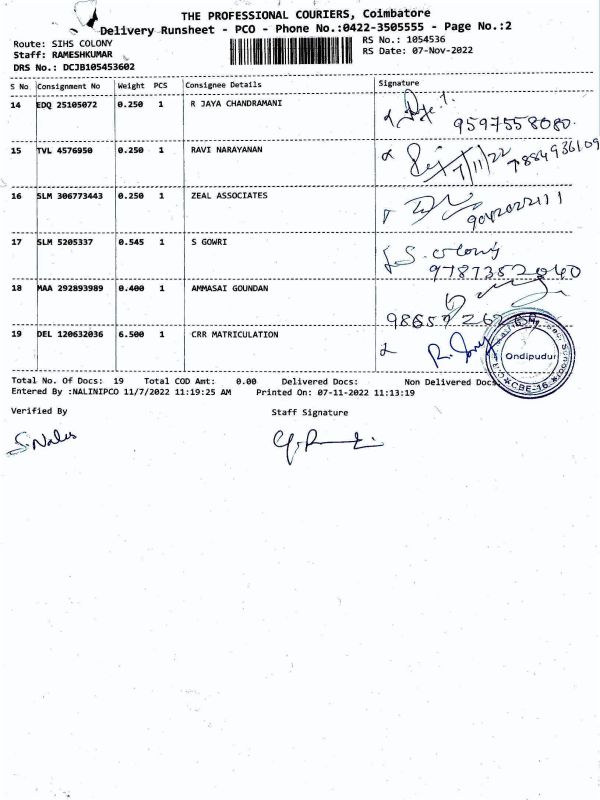 THE PROFESSIONAL COURIERS, Coimbatore
Delivery Runsheet - PCO - Phone No.:0422-3505555 - Page No.:2
Route: SIHS COLONY
Staff: RAMESHKUMAR
DRS No.: DCJB105453602
RS No.: 1054536
RS Date: 07-Nov-2022
S No Consignment No Weight PCS Consignee Details Signature
14 EDQ 25105072 0.250 1 R JAYA CHANDRAMANI
9597558080.
15 TVL 4576950 0.250 1 RAVI NARAYANAN
7/11/22 7884936109
16 SLM 306773443 0.250 1 ZEAL ASSOCIATES
9042022111
17 SLM 5205337 0.545 1 S GOWRI
S. colony
9787352040
18 MAA 292893989 0.400 1 AMMASAI GOUNDAN
19 DEL 120632036 6.500 1 CRR MATRICULATION
Ondipudur
CBE-16
Total No. Of Docs: 19 Total COD Amt: 0.00 Delivered Docs: Non Delivered Docs
Entered By :NALINIPCO 11/7/2022 11:19:25 AM Printed On: 07-11-2022 11:13:19
Verified By Staff Signature
S. Nales